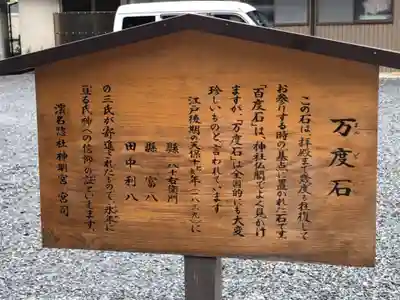 万度石
まんどいし
この石は、拝殿まで幾度も往復して
お参りする時の基点に置かれた石です。
「百度石」は、神社仏閣でよく見かけ
ますが、「万度石」は全国的にも大変
珍しいものと言われています
江戸後期の天保十年(一八三九)に
縣 八十右衛門
縣 富八
田中利八
の三氏が寄進されたもので、永年に
亘る氏神への信仰の証といえます。
濱名惣社 神明宮 宮司